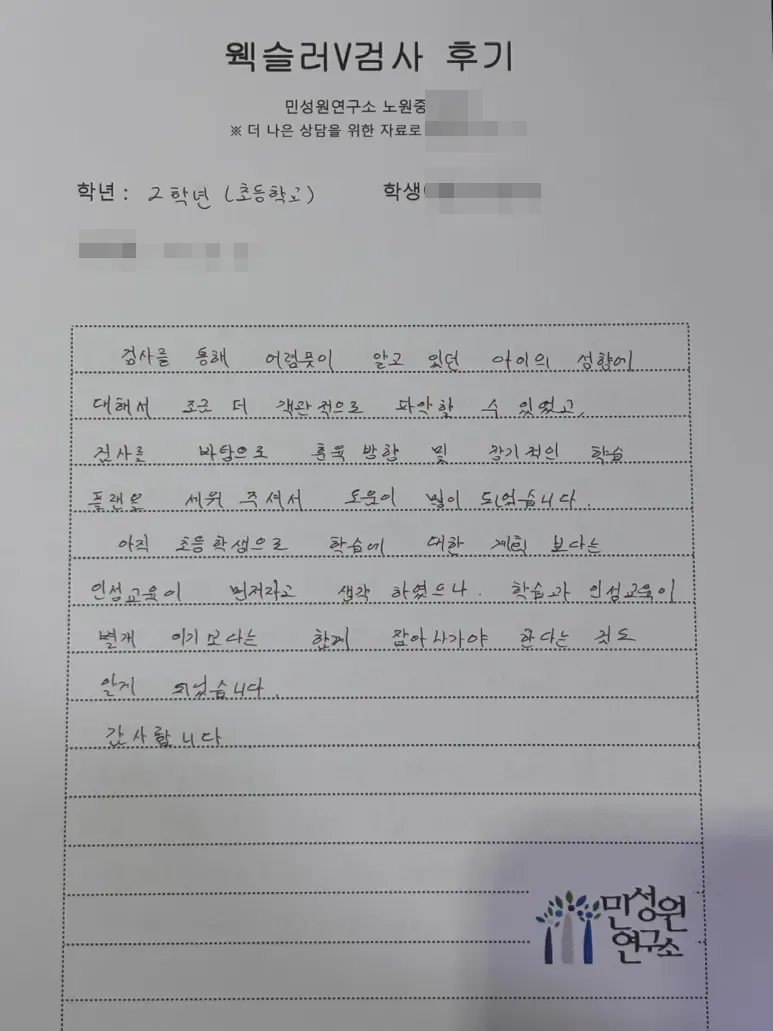 웩슬러V검사 후기
민성원연구소 노원중
※ 더 나은 상담을 위한 자료로
학년 : 2학년 (초등학교)
학생
검사를 통해 어렴풋이 알고 있던 아이의 성향에
대해서 조금 더 객관적으로 파악할 수 있었고,
검사를 바탕으로 훈육 방향 및 장기적인 학습
플랜을 세워 주셔서 도움이 많이 되었습니다.
아직 초등학생으로 학습에 대한 계획 보다는
인성교육이 먼저라고 생각 하였으나. 학습과 인성교육이
별개 이기보다는 함께 잡아나가야 한다는 것도
알게 되었습니다.
감사합니다
민성원
연구소